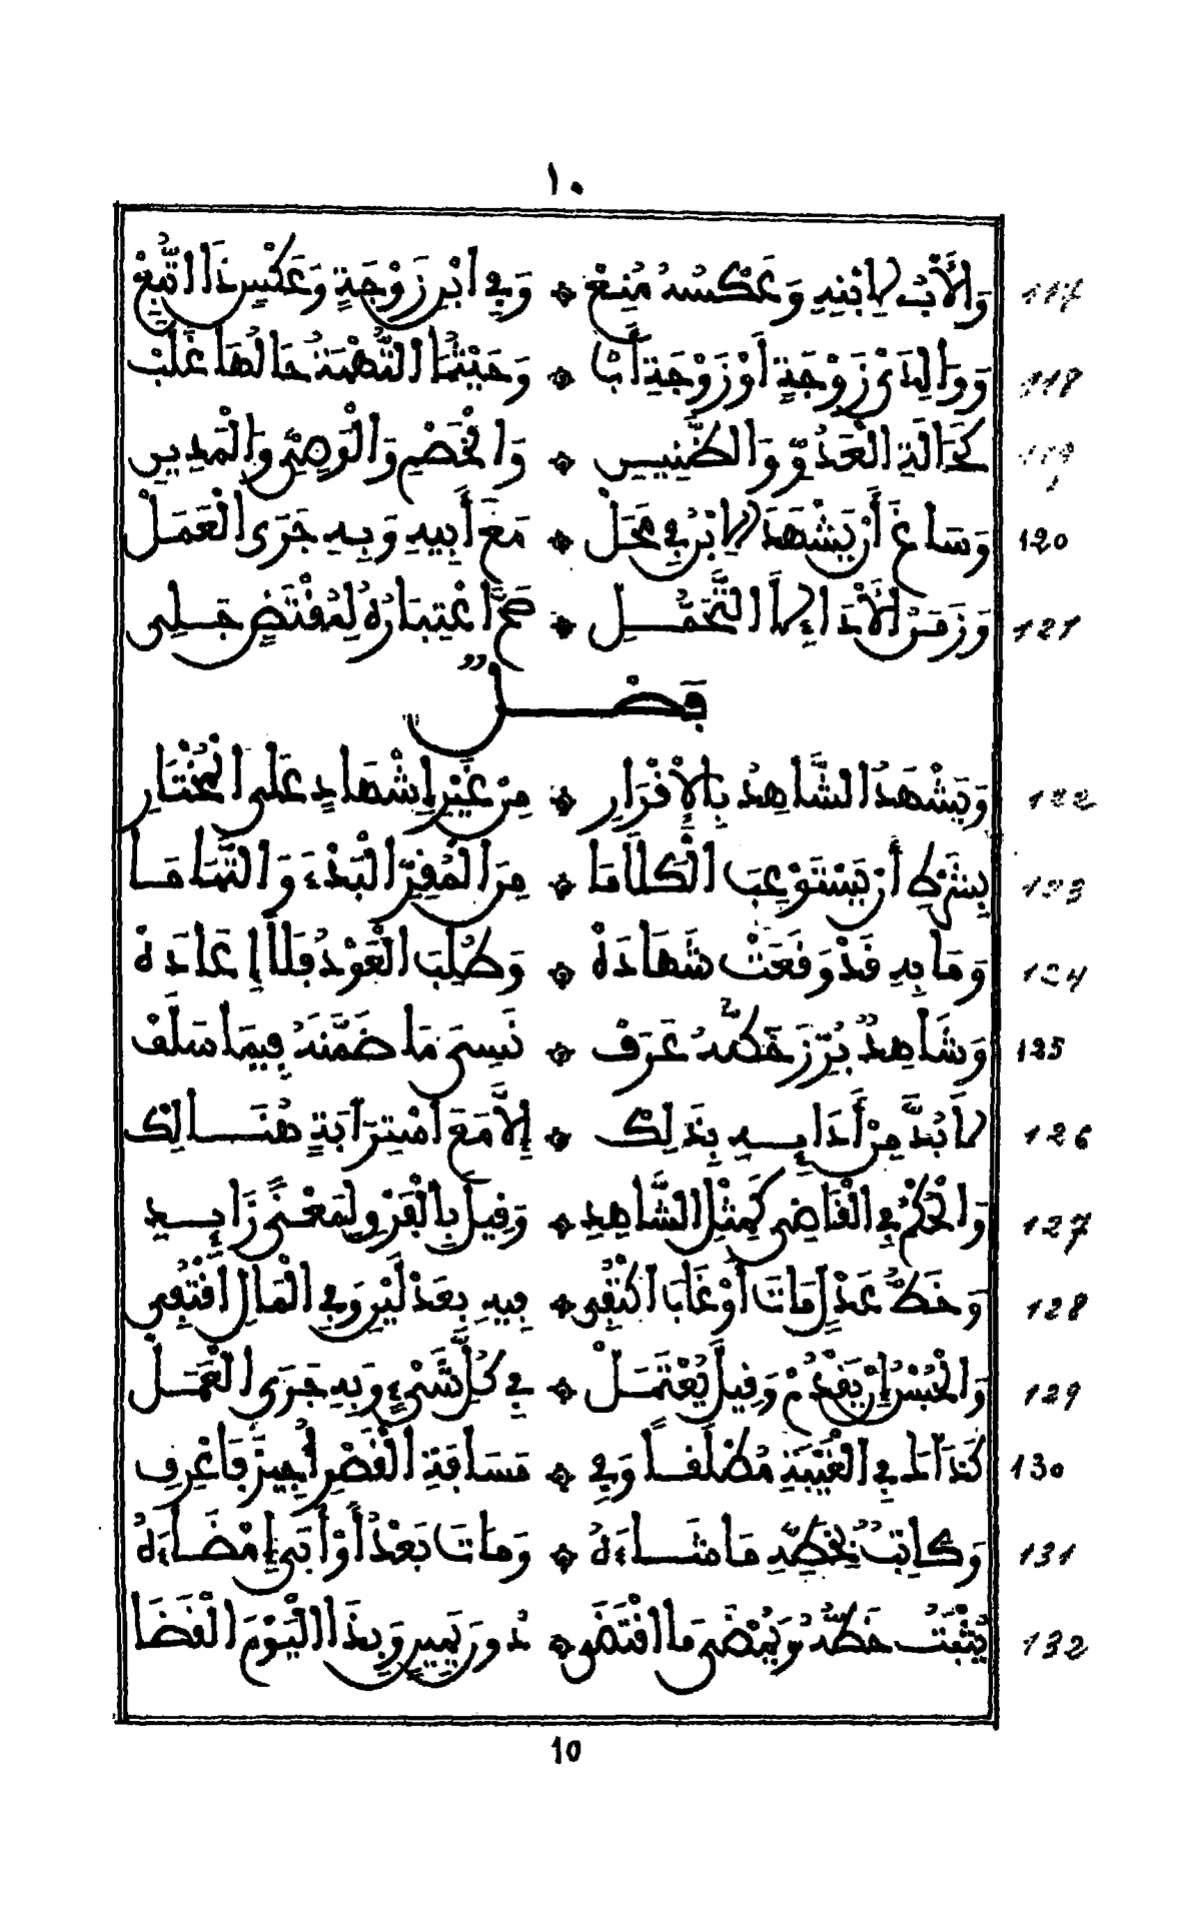 ١٠
وَالْأَبُ لِابْنِهِ وَعَكْسُهُ مُنِعْ ۞ وَفِي ابْنِ زَوْجَةٍ وَعَكْسِ ذَا اتُّبِعْ 117
وَوَالِدَيْ زَوْجَةٍ أَوْ زَوْجَةِ أَبْ ۞ وَحَيْثُمَا التُّهْمَةُ حَالُهَا غَلَبْ 118
كَحَالَةِ الْعَدُوِّ وَالظَّنِينِ ۞ وَالْخَصْمِ وَالْوَصِيِّ وَالْمَدِينِ 119
وَسَاغَ أَنْ يَشْهَدَ لِابْنٍ فِي مَحَلّْ ۞ مَعْ أَبِيهِ وَبِهِ جَرَى الْعَمَلْ 120
وَزَمَنُ الْأَدَاءِ لَا التَّحَمُّلِ ۞ صَحَّ اعْتِبَارُهُ لِمُقْتَضٍ جَلِي 121
فَصْلٌ
وَيَشْهَدُ الشَّاهِدُ بِالْإِقْرَارِ ۞ مِنْ غَيْرِ إِشْهَادٍ عَلَى الْمُخْتَارِ 122
بِشَرْطِ أَنْ يَسْتَوْعِبَ الْكَلَامَا ۞ مِنَ الْمُقِرِّ الْبَدْءَ وَالتَّمَامَا 123
وَمَا بِهِ قَدْ وَقَعَتْ شَهَادَهْ ۞ وَطُلِبَ الْعَوْدُ فَلَا إِعَادَهْ 124
وَشَاهِدٌ بُرِّزَ خَطَّهُ عَرَفْ ۞ نَسِيَ مَا ضَمَّنَهُ فِيمَا سَلَفْ 125
لَا بُدَّ مِنْ أَدَائِهِ بِذَلِكْ ۞ إِلَّا مَعَ اسْتِرَابَةٍ هُنَالِكْ 126
وَالْحُكْمُ فِي الْقَاضِي كَمِثْلِ الشَّاهِدِ ۞ وَقِيلَ بِالْفَرْقِ لِمَعْنًى زَايِدِ 127
وَخَطُّ عَدْلٍ مَاتَ أَوْ غَابَ اكْتُفِي ۞ فِيهِ بِعَدْلَيْنِ وَفِي الْمَالِ اقْتُفِي 128
وَالْحُبْسُ إِنْ يَقْدُمْ وَقِيلَ يُعْتَمَلْ ۞ فِي كُلِّ شَيْءٍ وَبِهِ جَرَى الْعَمَلْ 129
كَذَاكَ فِي الْغَيْبَةِ مُطْلَقًا وَفِي ۞ مَسَافَةِ الْقَصْرِ أُجِيزَ فَاعْرِفِ 130
وَكَاتِبٌ بِخَطِّهِ مَا شَاءَهُ ۞ وَمَاتَ بَعْدُ أَوْ أَبَى إِمْضَاءَهُ 131
يُثْبَتُ خَطُّهُ وَيُمْضَى مَا اقْتَضَى ۞ دُونَ يَمِينٍ وَبِذَا الْيَوْمَ الْقَضَا 132
10